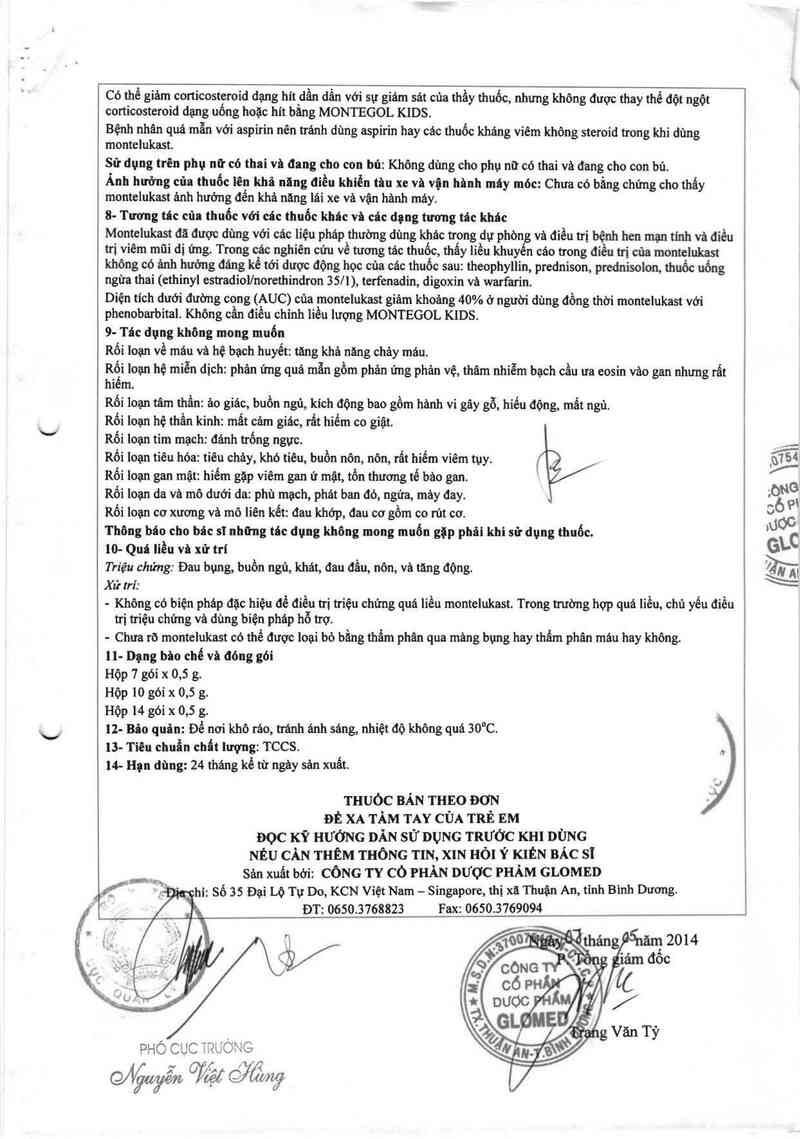 Có thể giảm corticosteroid dạng hít dần dần với sự giám sát của thầy thuốc, nhưng không được thay thế đột ngột
corticosteroid dạng uống hoặc hít bằng MONTEGOL KIDS.
Bệnh nhân quá mẫn với aspirin nên tránh dùng aspirin hay các thuốc kháng viêm không steroid trong khi dùng
montelukast.
Sử dụng trên phụ nữ có thai và đang cho con bú: Không dùng cho phụ nữ có thai và đang cho con bú.
Ảnh hưởng của thuốc lên khả năng điều khiển tàu xe và vận hành máy móc: Chưa có bằng chứng cho thấy
montelukast ảnh hưởng đến khả năng lái xe và vận hành máy.
8- Tương tác của thuốc với các thuốc khác và các dạng tương tác khác
Montelukast đã được dùng với các liệu pháp thường dùng khác trong dự phòng và điều trị bệnh hen mạn tính và điều
trị viêm mũi dị ứng. Trong các nghiên cứu về tương tác thuốc, thấy liều khuyến cáo trong điều trị của montelukast
không có ảnh hưởng đáng kể tới dược động học của các thuốc sau: theophyllin, prednison, prednisolon, thuốc uống
ngừa thai (ethinyl estradiol/norethindron 35/1), terfenadin, digoxin và warfarin.
Diện tích dưới đường cong (AUC) của montelukast giảm khoảng 40% ở người dùng đồng thời montelukast với
phenobarbital. Không cần điều chỉnh liều lượng MONTEGOL KIDS.
9- Tác dụng không mong muốn
Rối loạn về máu và hệ bạch huyết: tăng khả năng chảy máu.
Rối loạn hệ miễn dịch: phản ứng quá mẫn gồm phản ứng phản vệ, thâm nhiễm bạch cầu ưa eosin vào gan nhưng rất
hiếm.
Rối loạn tâm thần: ảo giác, buồn ngủ, kích động bao gồm hành vi gây gỗ, hiếu động, mất ngủ.
Rối loạn hệ thần kinh: mất cảm giác, rất hiếm co giật.
Rối loạn tim mạch: đánh trống ngực.
Rối loạn tiêu hóa: tiêu chảy, khó tiêu, buồn nôn, nôn, rất hiếm viêm tụy.
Rối loạn gan mật: hiếm gặp viêm gan ứ mật, tổn thương tế bào gan.
Rối loạn da và mô dưới da: phù mạch, phát ban đỏ, ngứa, mày đay.
Rối loạn cơ xương và mô liên kết: đau khớp, đau cơ gồm co rút cơ.
Thông báo cho bác sĩ những tác dụng không mong muốn gặp phải khi sử dụng thuốc.
10- Quá liều và xử trí
Triệu chứng: Đau bụng, buồn ngủ, khát, đau đầu, nôn, và tăng động.
Xử trí:
- Không có biện pháp đặc hiệu để điều trị triệu chứng quá liều montelukast. Trong trường hợp quá liều, chủ yếu điều
trị triệu chứng và dùng biện pháp hỗ trợ.
- Chưa rõ montelukast có thể được loại bỏ bằng thẩm phân qua màng bụng hay thẩm phân máu hay không.
11- Dạng bào chế và đóng gói
Hộp 7 gói x 0,5 g.
Hộp 10 gói x 0,5 g.
Hộp 14 gói x 0,5 g.
12- Bảo quản: Để nơi khô ráo, tránh ánh sáng, nhiệt độ không quá 30°C.
13- Tiêu chuẩn chất lượng: TCCS.
14- Hạn dùng: 24 tháng kể từ ngày sản xuất.
THUỐC BÁN THEO ĐƠN
ĐỂ XA TẦM TAY CỦA TRẺ EM
ĐỌC KỸ HƯỚNG DẪN SỬ DỤNG TRƯỚC KHI DÙNG
NẾU CẦN THÊM THÔNG TIN, XIN HỎI Ý KIẾN BÁC SĨ
Sản xuất bởi: CÔNG TY CỔ PHẦN DƯỢC PHẨM GLOMED
Địa chỉ: Số 35 Đại Lộ Tự Do, KCN Việt Nam – Singapore, thị xã Thuận An, tỉnh Bình Dương.
ĐT: 0650.3768823 Fax: 0650.3769094
Ngày 07 tháng 05 năm 2014
P. Tổng giám đốc
CÔNG TY
CỔ PHẦN
DƯỢC PHẨM
GLOMED
Trang Văn Tý
PHÓ CỤC TRƯỞNG
Nguyễn Việt Hùng